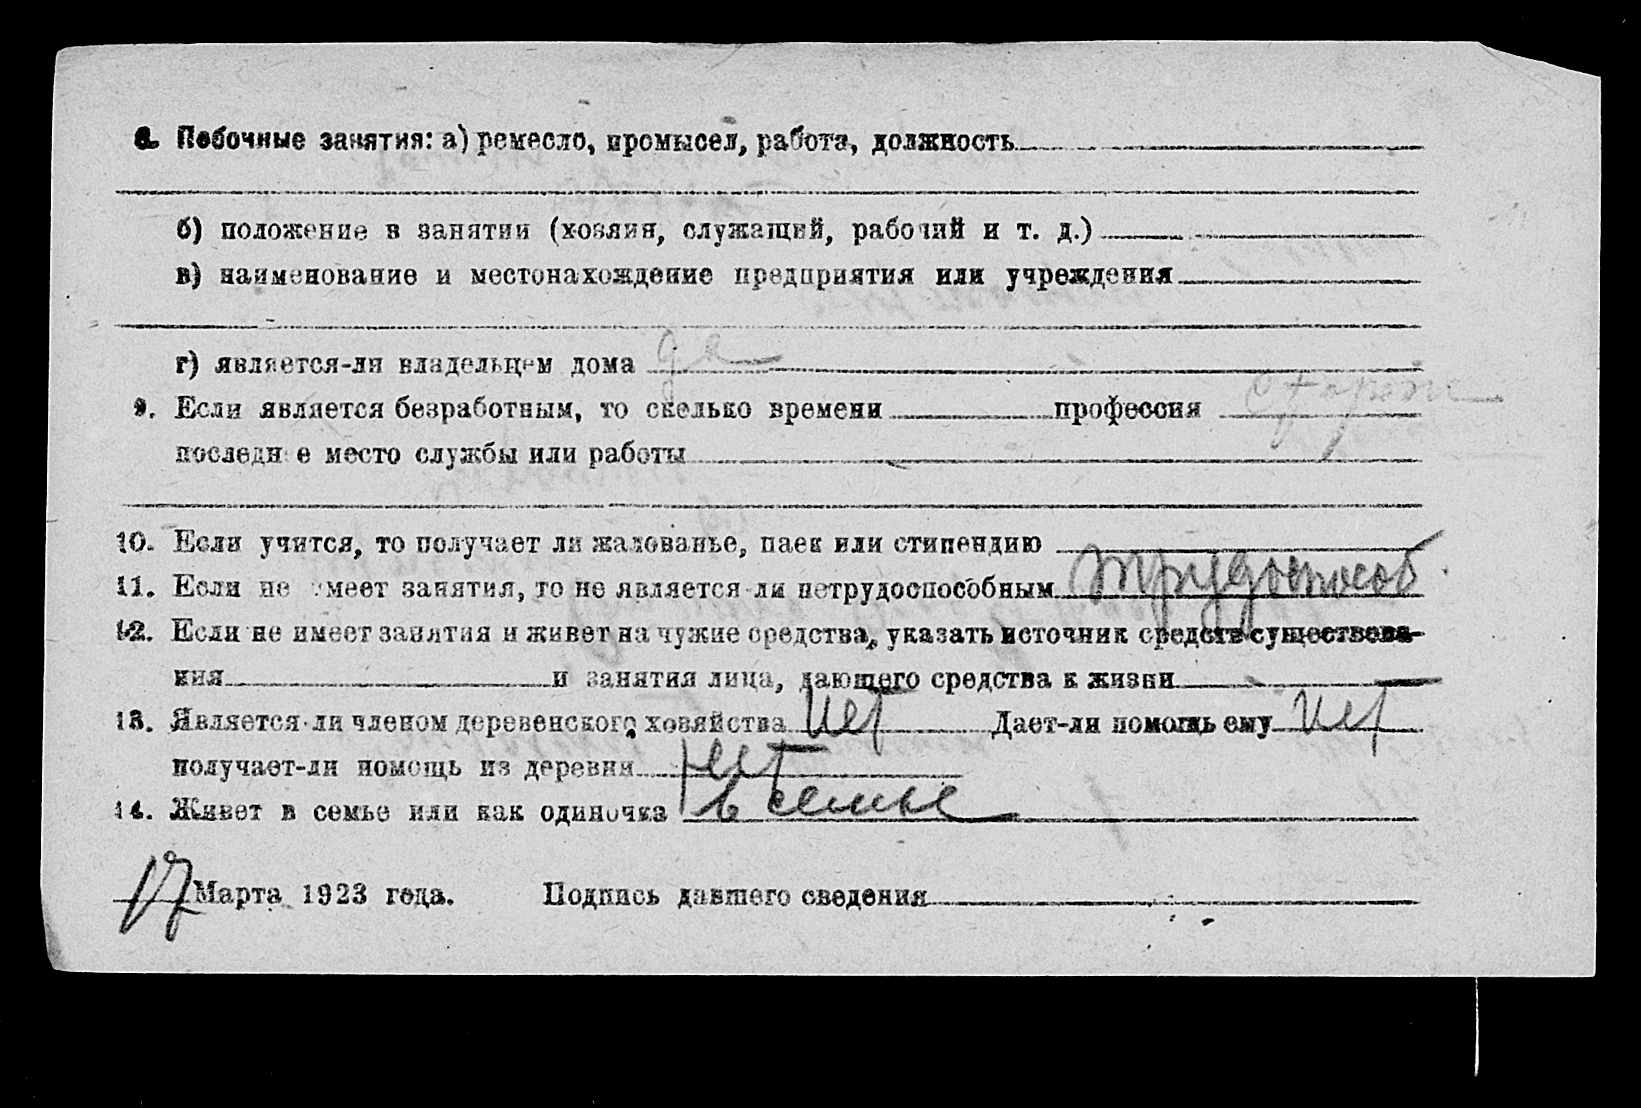 8. Побочные занятия: а) ремесло, промысел, работа, должность
б) положение в занятии (хозяин, служащий, рабочий и т. д.)
в) наименование и местонахождение предприятия или учреждения
г) является-ли владельцем дома да
9. Если является безработным, то сколько времени профессия
последнее место службы или работы
10. Если учится, то получает ли жалованье, паек или стипендию
11. Если не имеет занятия, то не является-ли нетрудоспособным трудоспособ.
12. Если не имеет занятия и живет на чужие средства, указать источник средств существова-
ния и занятия лица, дающего средства к жизни
13. Является-ли членом деревенского хозяйства нет Дает-ли помощь ему нет
получает-ли помощь из деревни нет
14. Живет в семье или как одиночка в семье
17 Марта 1923 года. Подпись давшего сведения